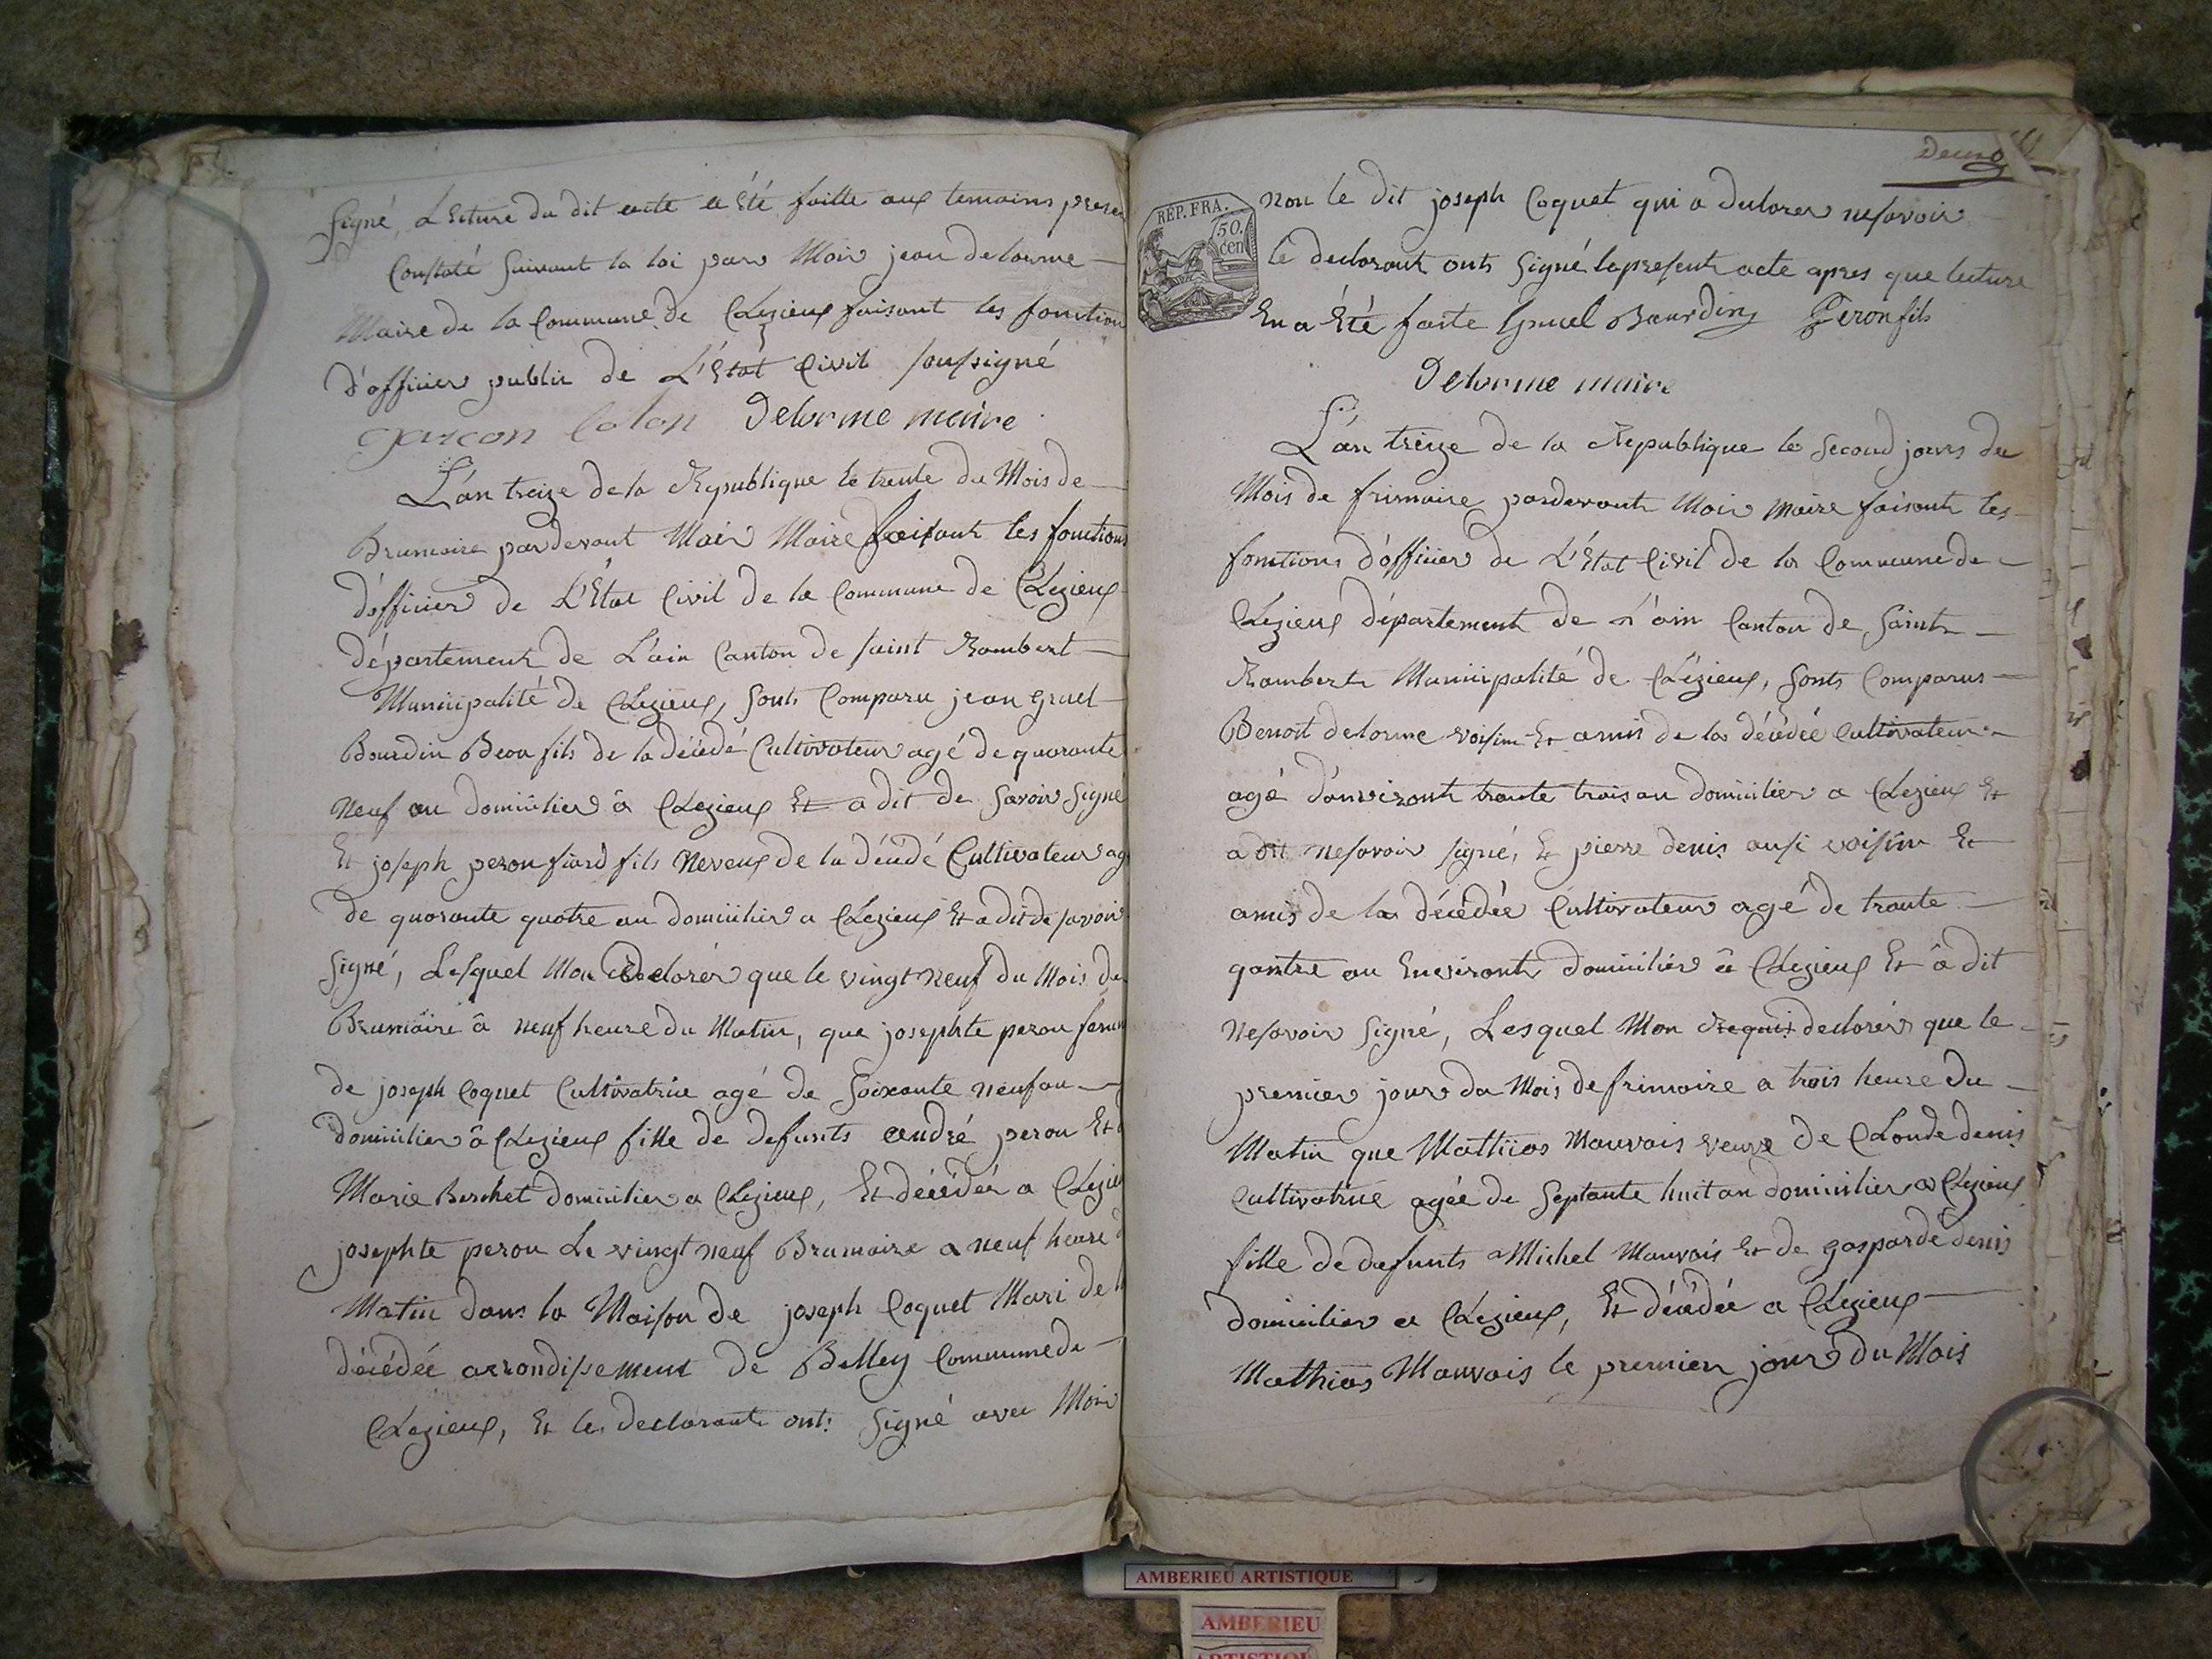 Signé, Lecture du dit acte a Été faitte aux temoins
Constaté suivant la loi par Moi jean delorme
Maire de la Commune de Clezieux faisant les fonction
d'officier public de L'Etat Civil soussigné
garcon Colon Delorme maire
L'an treize de la Republique le trente du Mois de
Brumaire pardevant Moi Maire faisant les fonctions
d'officier de L'Etat Civil de la Commune de Clezieux
département de L'ain Canton de saint Rambert
Municipalité de Clezieux, sont Comparu jean gruel
Bourdin Beau fils de la décédé Cultivateur agé de quarante
neuf an domicilier â Clezieux Et a dit de savoir signé
Et joseph peron fiard fils Neveux de la décédé Cultivateur agé
de quarante quatre an domicilier a Clezieux Et a dit de savoir
Signé, Lesquel Mon declarér que le vingt neuf du Mois de
Brumaire â neuf heure du Matin, que josephte peron femme
de joseph Coquet Cultivatrice agé de Soixante neuf an
domicilier â Clezieux fille de defunts andré peron Et
Marie Berchet domicilier a Clezieux, Et décédée a Clezieux
josephte peron Le vingt neuf Brumaire a neuf heure
Matin dans la Maison de joseph Coquet Mari de
décédée arrondissement de Belley Commune de
Clezieux, Et les declarants ont signé avec Moi
REP. FRA.
50.
cen
non le dit joseph Coquet qui a declarer ne savoir
le declarant onts signé le present acte apres que lecture
En a Eté faite gruel Bourdin Peron fils
Delorme maire
L'an treize de la Republique le second jours du
Mois de frimaire pardevant Moi maire faisant les
fonctions d'officier de L'Etat Civil de la Commune de
Clezieux département de L'ain Canton de saint
Rambert Municipalité de Clézieux, sont Comparus
Benoit delorme voisin Et amis de la décédée Cultivateur
agé d'environt trante trois an domicilier a Clezieux Et
a dit ne savoir signé, Et pierre denis ausi voisin Et
amis de la décédée Cultivateur agé de trante
qautre an Environt domicilier â Clezieux Et â dit
Ne savoir signé, Lesquel Mon requis declarér que le
premier jour du Mois de frimaire a trois heure du
Matin que Mathias Mauvais veuve de Cloude denis
Cultivatrice agée de septante huit an domicilier a Clezieux
fille de defunts Michel Mauvais Et de gasparde denis
domicilier a Clezieux, Et décédée a Clezieux
Mathias Mauvais le premier jour du Mois
AMBERIEU ARTISTIQUE
AMBERIEU
ARTISTIQUE